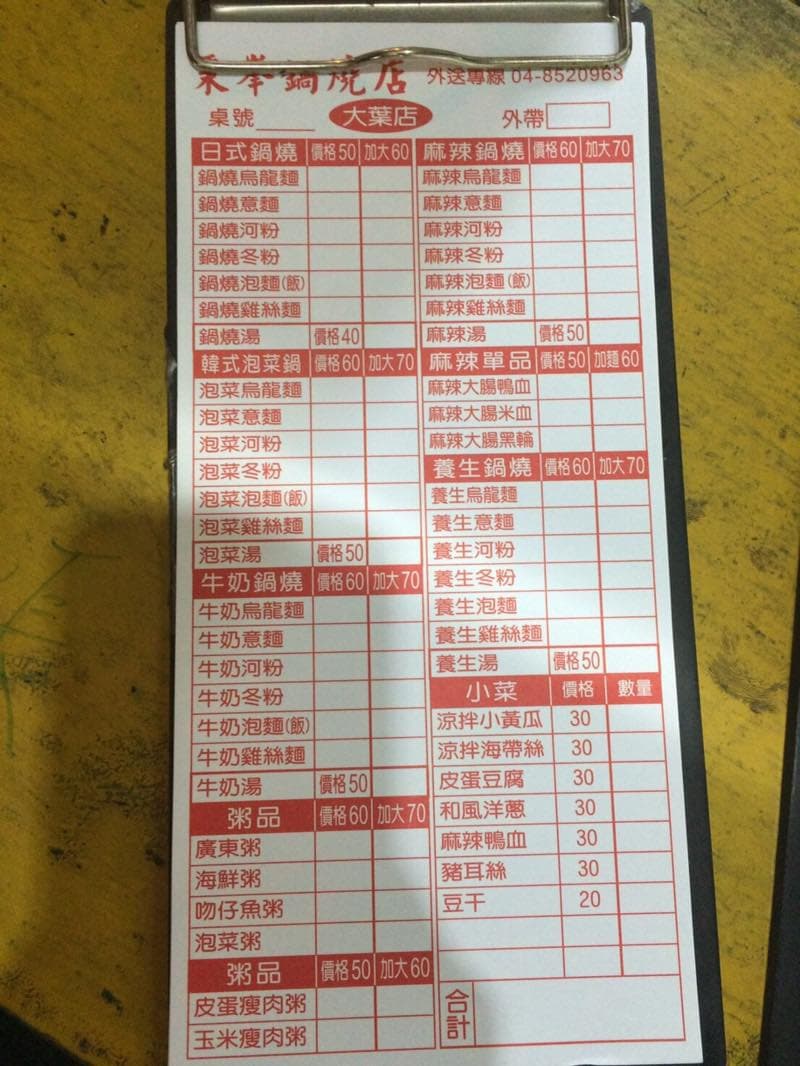 峯鍋燒店 外送專線 04-8520963
桌號 大葉店 外帶
日式鍋燒 價格50 加大60
鍋燒烏龍麵
鍋燒意麵
鍋燒河粉
鍋燒冬粉
鍋燒泡麵(飯)
鍋燒雞絲麵
鍋燒湯 價格40
韓式泡菜鍋 價格60 加大70
泡菜烏龍麵
泡菜意麵
泡菜河粉
泡菜冬粉
泡菜泡麵(飯)
泡菜雞絲麵
泡菜湯 價格50
牛奶鍋燒 價格60 加大70
牛奶烏龍麵
牛奶意麵
牛奶河粉
牛奶冬粉
牛奶泡麵(飯)
牛奶雞絲麵
牛奶湯 價格50
粥品 價格60 加大70
廣東粥
海鮮粥
吻仔魚粥
泡菜粥
粥品 價格50 加大60
皮蛋瘦肉粥
玉米瘦肉粥
麻辣鍋燒 價格60 加大70
麻辣烏龍麵
麻辣意麵
麻辣河粉
麻辣冬粉
麻辣泡麵(飯)
麻辣雞絲麵
麻辣湯 價格50
麻辣單品 價格50 加麵60
麻辣大腸鴨血
麻辣大腸米血
麻辣大腸黑輪
養生鍋燒 價格60 加大70
養生烏龍麵
養生意麵
養生河粉
養生冬粉
養生泡麵
養生雞絲麵
養生湯 價格50
小菜 價格 數量
涼拌小黃瓜 30
涼拌海帶絲 30
皮蛋豆腐 30
和風洋蔥 30
麻辣鴨血 30
豬耳絲 30
豆干 20
合計